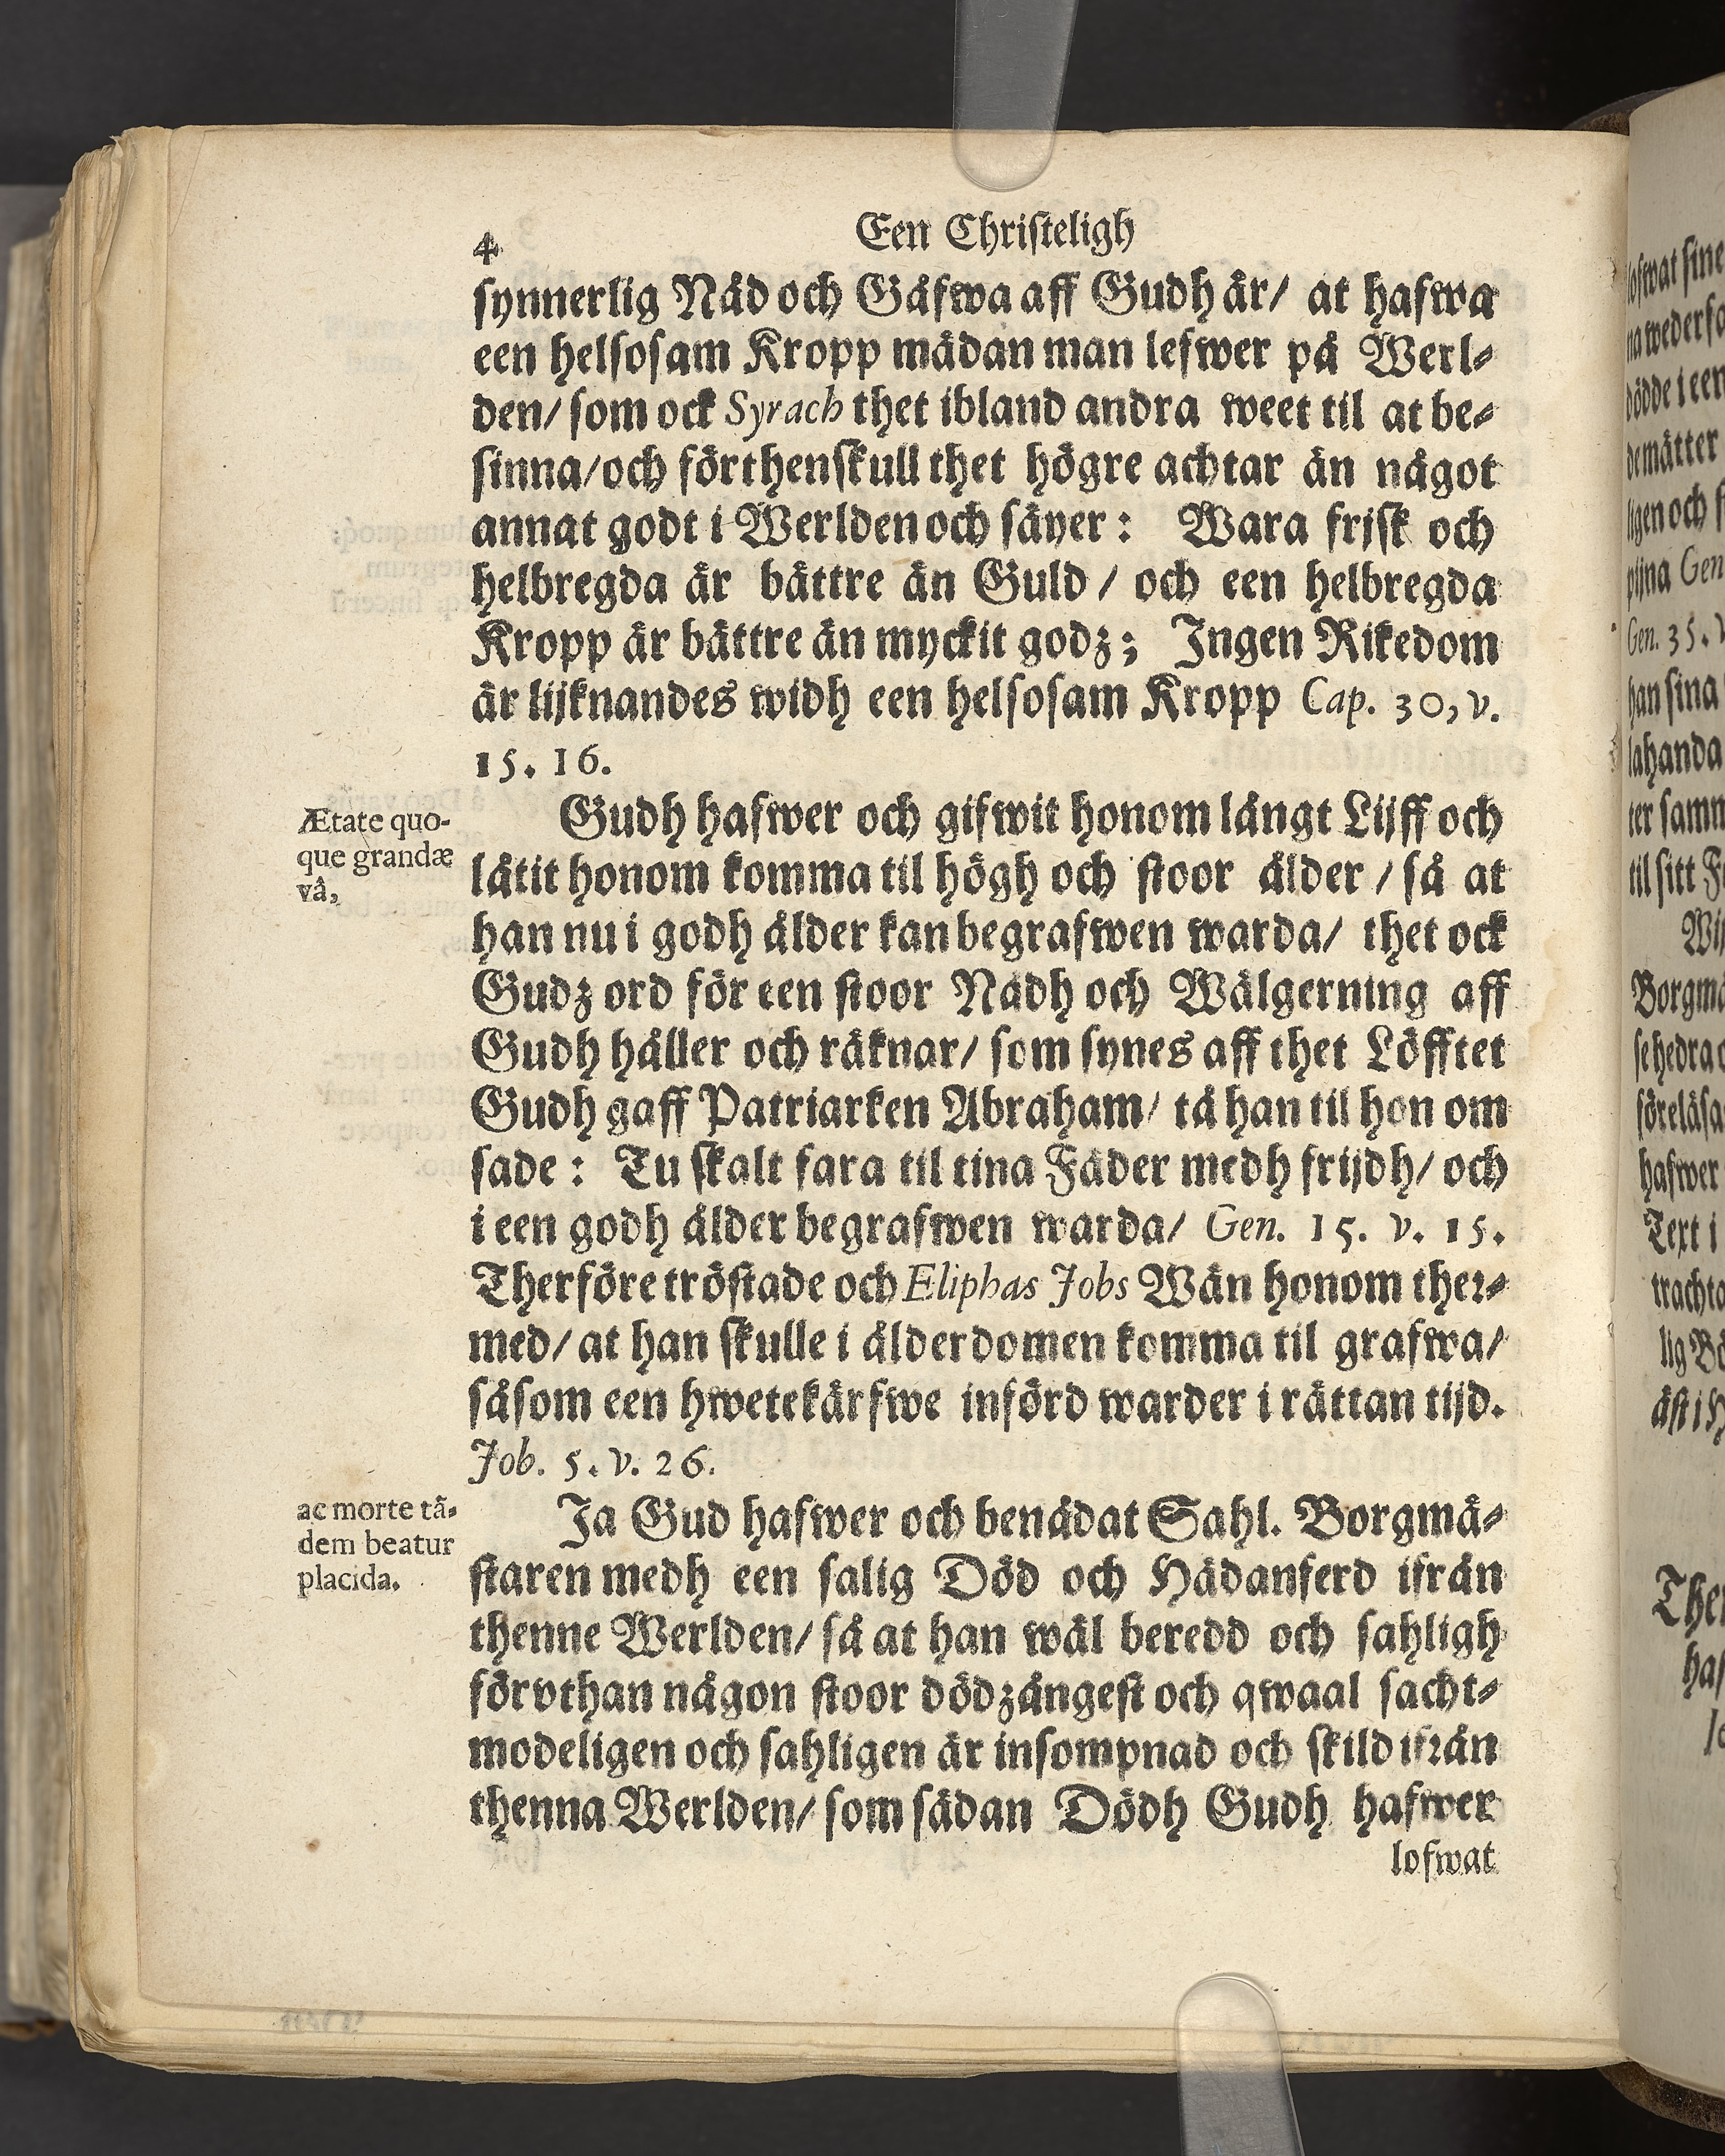 4
Een Christeligh
synnerlig Nåd och Gåfwa aff Gudh är/ at hafwa
een helsosam Kropp mädan man lefwer på Werl-
den/ som ock Syrach thet ibland andra weet til at be-
sinna/ och förthenskull thet högre achtar än något
annat godt i Werlden och säyer: Wara frisk och
helbregda är bättre än Guld / och een helbregda
Kropp är bättre än myckit godz; Ingen Rikedom
är lijknandes widh een helsosam Kropp Cap. 30, v.
15. 16.
Ætate quo-
que grandæ
vâ,
Gudh hafwer och gifwit honom långt Lijff och
låtit honom komma til högh och stoor ålder / så at
han nu i godh ålder kan begrafwen warda/ thet ock
Gudz ord för een stoor Nådh och Wälgerning aff
Gudh håller och räknar/ som synes aff thet Löfftet
Gudh gaff Patriarken Abraham/ tå han til honom
sade: Tu skalt fara til tina Fäder medh frijdh/ och
i een godh ålder begrafwen warda/ Gen. 15. v. 15.
Therföre tröstade och Eliphas Jobs Wän honom ther-
med/ at han skulle i ålderdomen komma til grafwa/
såsom een hwetekärfwe införd warder i rättan tijd.
Job. 5. v. 26.
ac morte tã-
dem beatur
placida.
Ja Gud hafwer och benådat Sahl. Borgmä-
staren medh een salig Död och Hädanferd ifrån
thenne Werlden/ så at han wäl beredd och sahligh
förvthan någon stoor dödzångest och qwaal sacht-
modeligen och sahligen är insompnad och skild ifrån
thenna Werlden/ som sådan Dödh Gudh hafwer
lofwat